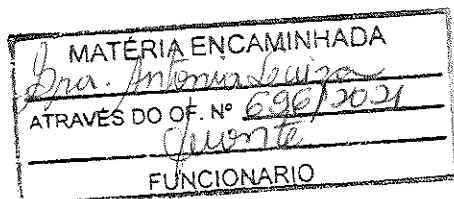 MATÉRIA ENCAMINHADA
Dra. Antonia Luiza
ATRAVÉS DO OF. Nº 696/2021
FUNCIONARIO